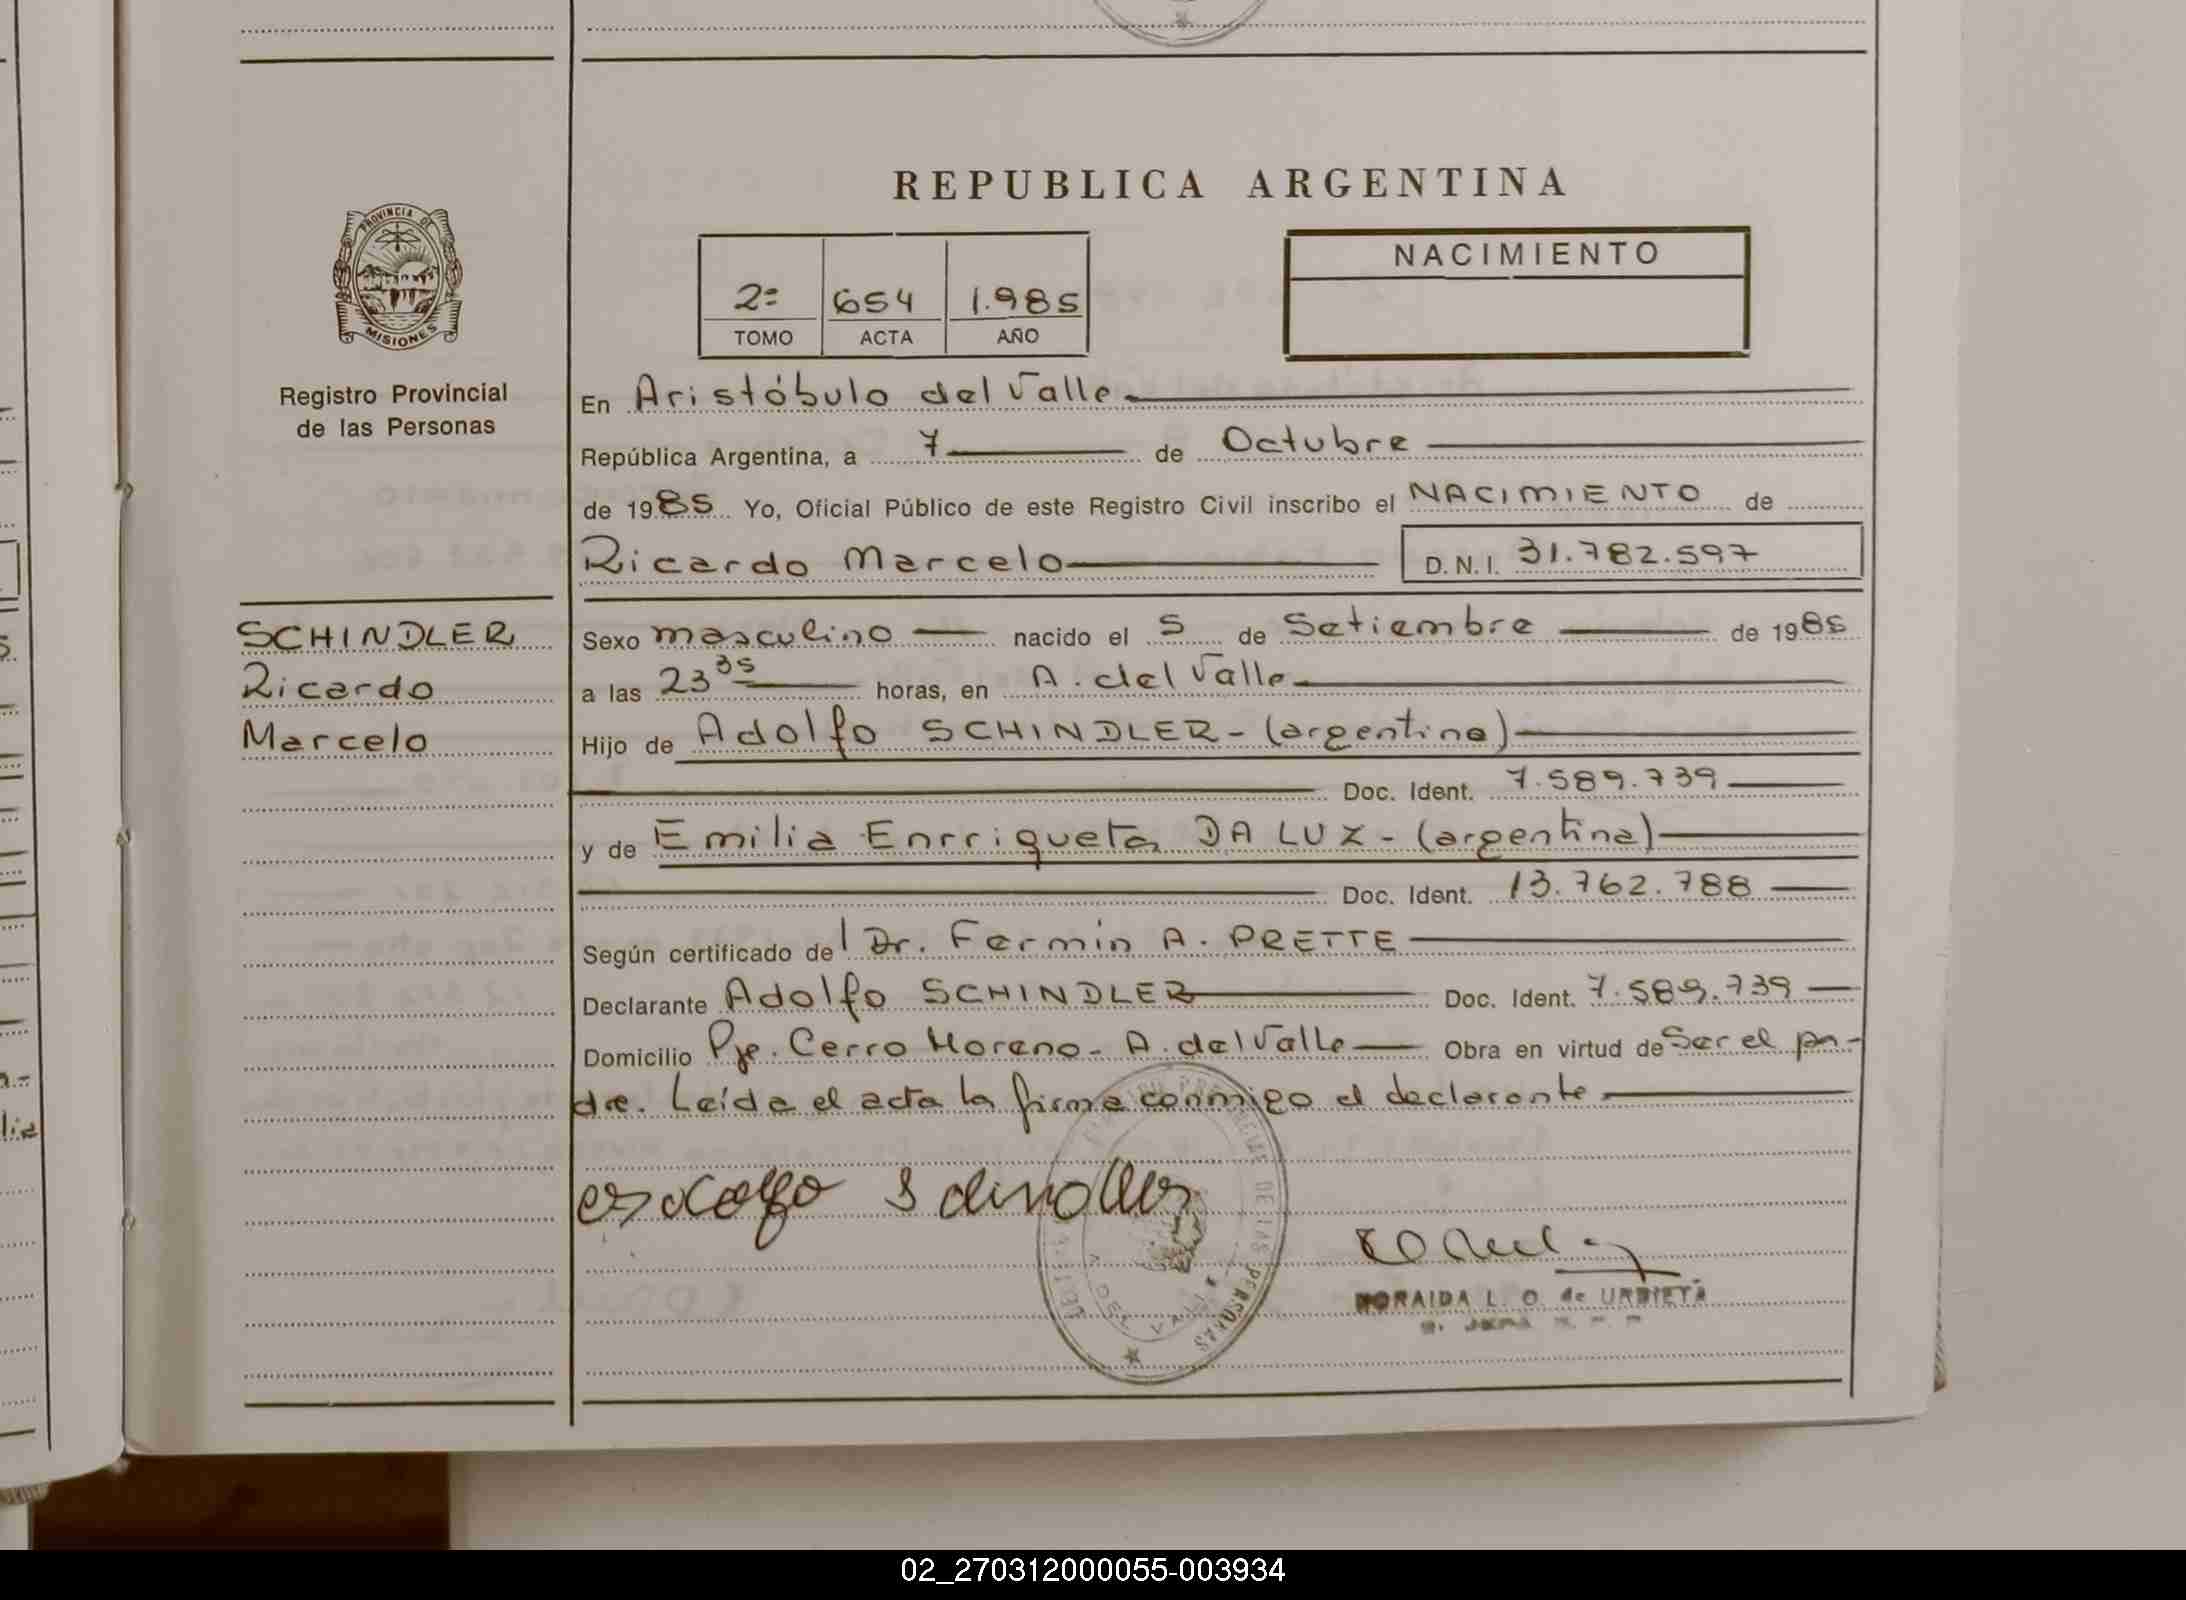 REPUBLICA ARGENTINA
PROVINCIA DE
MISIONES
Registro Provincial
de las Personas
2º 654 1.985
TOMO ACTA AÑO
NACIMIENTO
En Aristóbulo del Valle
República Argentina, a 7 de Octubre
de 1985 Yo, Oficial Público de este Registro Civil inscribo el NACIMIENTO de
Ricardo Marcelo D.N.I. 31.782.597
SCHINDLER
Ricardo
Marcelo
Sexo masculino nacido el 5 de Setiembre de 1985
a las 23 35 horas, en A. del Valle
Hijo de Adolfo SCHINDLER - (argentino)
Doc. Ident. 7.589.739
y de Emilia Enrriqueta DA LUZ - (argentina)
Doc. Ident. 13.762.788
Según certificado del Dr. Fermín A. PRETTE
Declarante Adolfo SCHINDLER Doc. Ident. 7.589.739
Domicilio Pje. Cerro Moreno - A. del Valle Obra en virtud de Ser el pa-
dre. Leída el acta la firma conmigo el declarante
DE LAS PERSONAS
A. DEL VALLE
NORAIDA L. O. de URBIETA
02_270312000055-003934